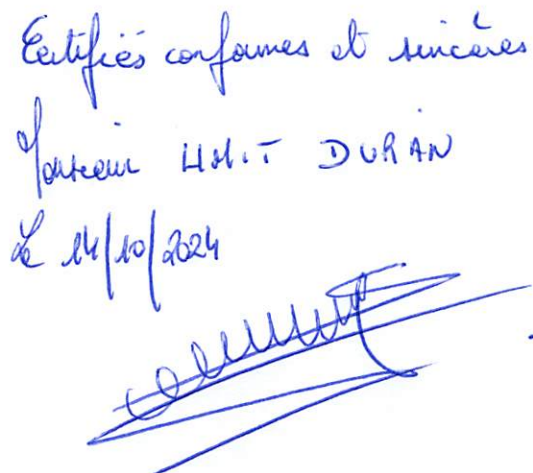 Certifiés conformes et sincères
Monsieur DURAN
Le 14/10/2024